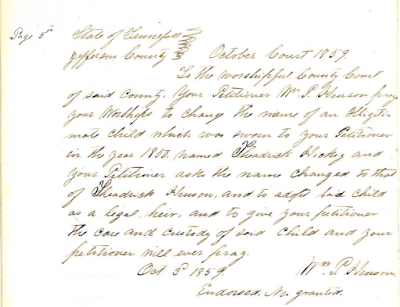 Page 5
State of Tennessee
Jefferson County October Court 1859
To the Worshipful County Court
of said County. Your Petitioner Wm P. Henson pray
your Worships to change the name of an Illigiti-
mate child which was sworn to your Petitioner
in the year 1850. named Theadrick Hickey and
your Petitioner asks the name changed to that
of Theadrick Henson, and to adopt said child
as a legal heir, and to give your petitioner
the care and custody of said child and your
petitioner will ever pray.
Oct 5 1859. Wm. P. Henson.
Endorsed. No. granted.